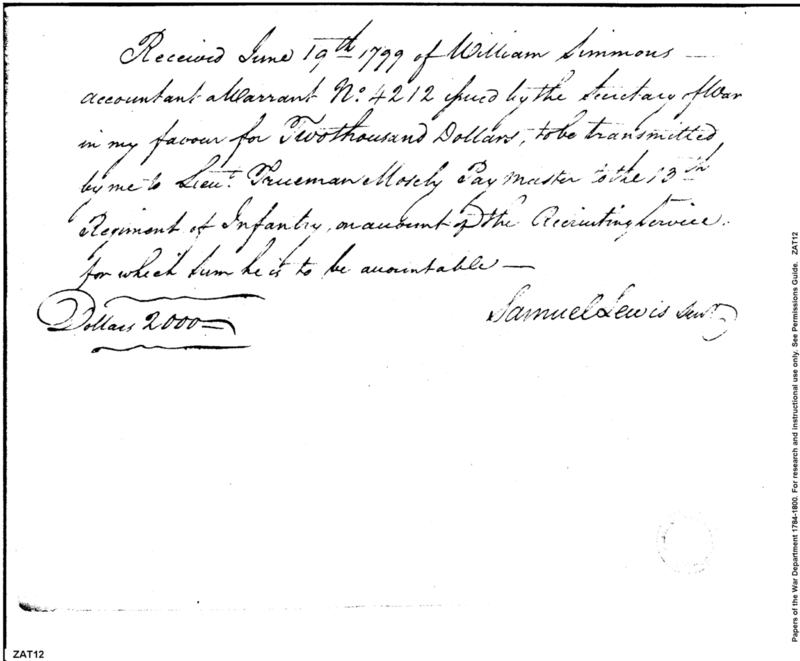 Received June 19th 1799 of William Simmons
accountant a Warrant No. 4212 issued by the Secretary of War
in my favour for Two thousand Dollars, to be transmitted
by me to Lieut. Trueman Mosely Pay Master to the 13th
Regiment of Infantry, on account of the Recruiting Service.
for which sum he is to be accountable —
Dollars 2000 —
Samuel Lewis Senr.
Papers of the War Department 1784-1800. For research and instructional use only. See Permissions Guide. ZAT12
ZAT12